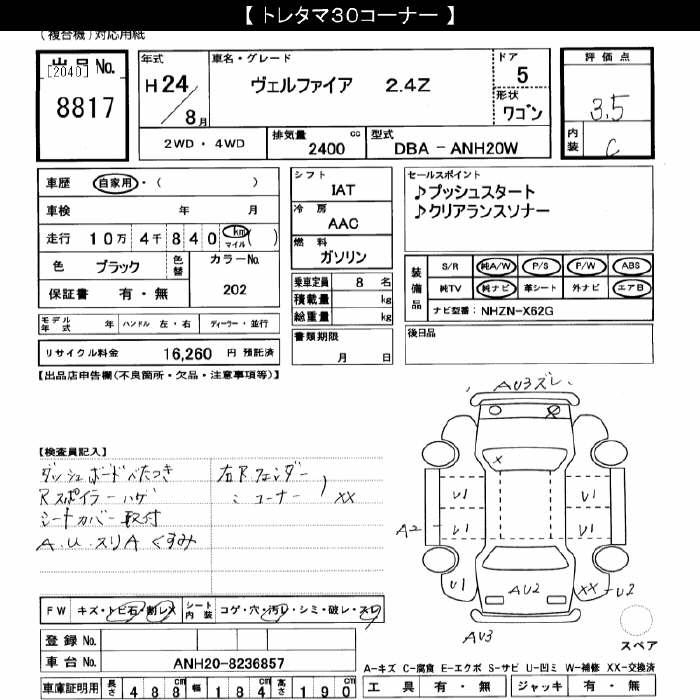 【 トレタマ30コーナー 】
(複合機)対応用紙
出品 No.
[2040]
8817
年式
H 24 / 8 月
車名・グレード
ヴェルファイア 2.4Z
ドア
5
形状
ワゴン
評価点
3.5
内装
C
2WD・4WD
排気量 cc
2400
型式
DBA - ANH20W
車歴 自家用・( )
車検 年 月
走行 10万 4千 8 4 0 km マイル ( )
色 ブラック 色替
カラーNo.
202
保証書 有・無
モデル年式 年 ハンドル 左・右 ディーラー・並行
リサイクル料金 16,260 円 預託済
シフト
IAT
冷房
AAC
燃料
ガソリン
乗車定員 8 名
積載量 kg
総重量 kg
書類期限
月 日
セールスポイント
♪プッシュスタート
♪クリアランスソナー
装備品
S/R 純A/W P/S P/W ABS
純TV 純ナビ 革シート 外ナビ エアB
ナビ型番: NHZN-X62G
後日品
【出品店申告欄(不良箇所・欠品・注意事項等)】
【検査員記入】
ダッシュボードベたつき
Rスポイラーハゲ
シートカバー取付
A.U.スリA くすみ
右Rフェンダー
〃 コーナー ) XX
AU3ズレ
X
X
U1
U1
A2
U1
U1
U1
AU2
XX
U2
AU3
スペア
FW キズ・トビ石・割レX シート内装 コゲ・穴・汚レ・シミ・破レ・スレ
登録 No.
車台 No. ANH20-8236857
車庫証明用 長さ 488 cm 幅 184 cm 高さ 190 cm
A-キズ C-腐食 E-エクボ S-サビ U-凹ミ W-補修 XX-交換済
工具 有・無 ジャッキ 有・無